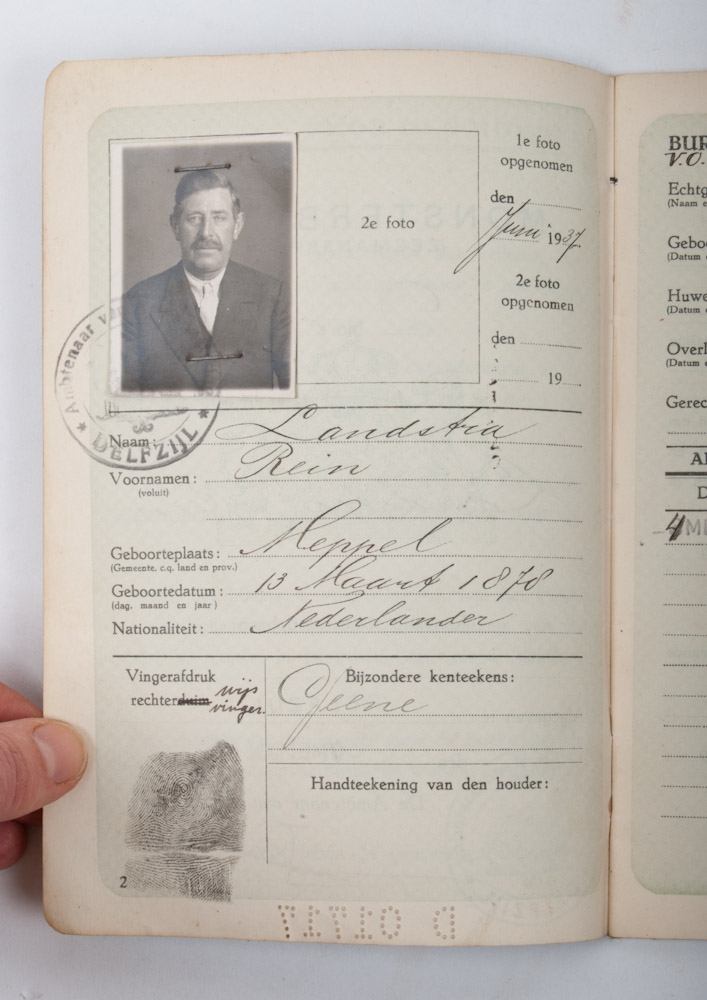 1e foto
opgenomen
den
Juni 1937
2e foto
2e foto
opgenomen
den
19
Ambtenaar
DELFZIJL
Naam: Landstra
Voornamen: Rein
(voluit)
Geboorteplaats: Meppel
(Gemeente. c.q. land en prov.)
Geboortedatum: 13 Maart 1878
(dag. maand en jaar)
Nationaliteit: Nederlander
Vingerafdruk
rechterduim wijs
vinger.
Bijzondere kenteekens:
Geene
Handteekening van den houder:
2
BUR
v.o.
Echtg
(Naam e
Geboo
(Datum e
Huwe
(Datum e
Overl
(Datum e
Gerec
A
D
4